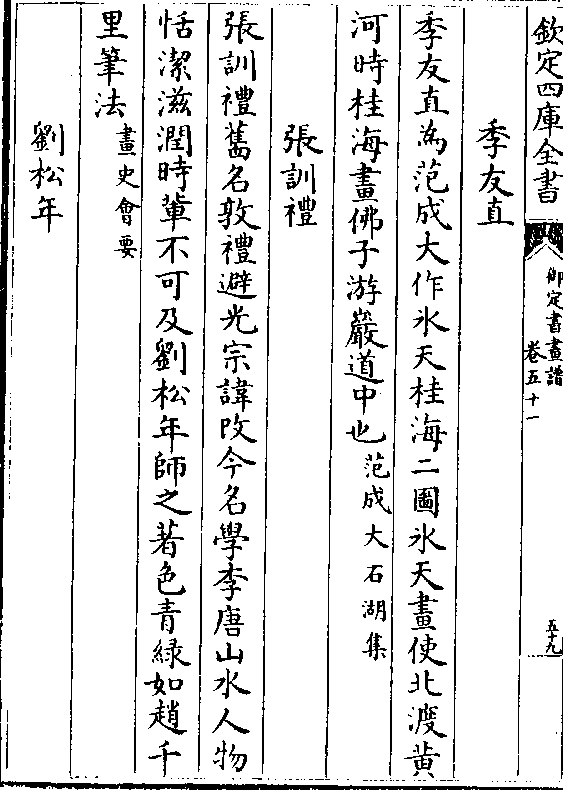 欽定四庫全書
御定書畫譜
卷五十一
五十九
季友直
李友直為范成大作氷天桂海二圖氷天畫使北渡黄
河時桂海畫佛子游巖道中也范成大石湖集
張訓禮
張訓禮舊名敦禮避光宗諱改今名學李唐山水人物
恬潔滋潤時軰不可及劉松年師之著色青緑如趙千
里筆法畫史會要
劉松年